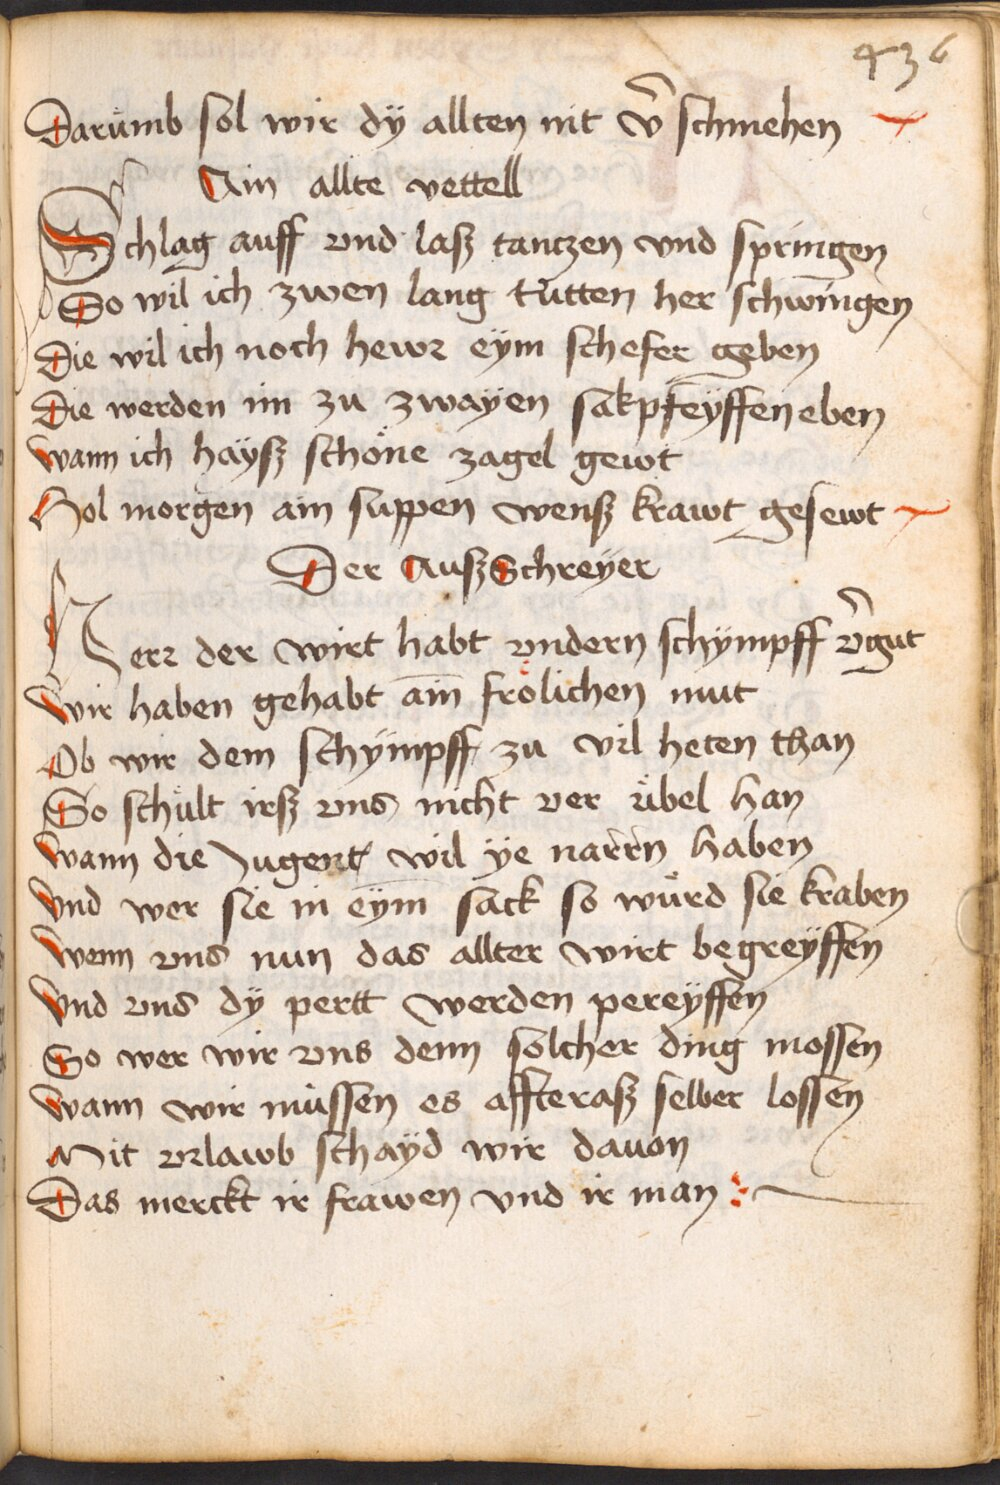 436
Darumb sol wir dÿ allten nit v̄schmehen
Ain allte vettell
Schlag auff vnd lasz tantzen vnd springen
So wil ich zwen lang tutten her schwingen
Die wil ich noch hewr eym schefer geben
Die werden im zu zwaÿen sakpfeÿffen eben
Wann ich haÿsz schöne zagel gewt
Hol morgen ain suppen wensz krawt gesewt
Der Ausz Schreÿer
Herr der wirt habt vndern schÿmpff v̄gut
Wir haben gehabt ain frölichen mut
Ob wir dem schÿmpff zu vil heten than
So schült irsz vns nicht ver übel han
Wann die Jugent wil ÿe narrn haben
Vnd wer sie in eÿm sack so würd sie kraben
Wenn vns nun das allter wirt begreÿffen
Vnd vns dÿ pertt werden pereÿffen
So wer wir vns denn solcher ding mossen
Wann wir müssen es affterasz selber lossen
Mit vrlawb schaÿd wir dauon
Das merckt ir frawen vnd ir man